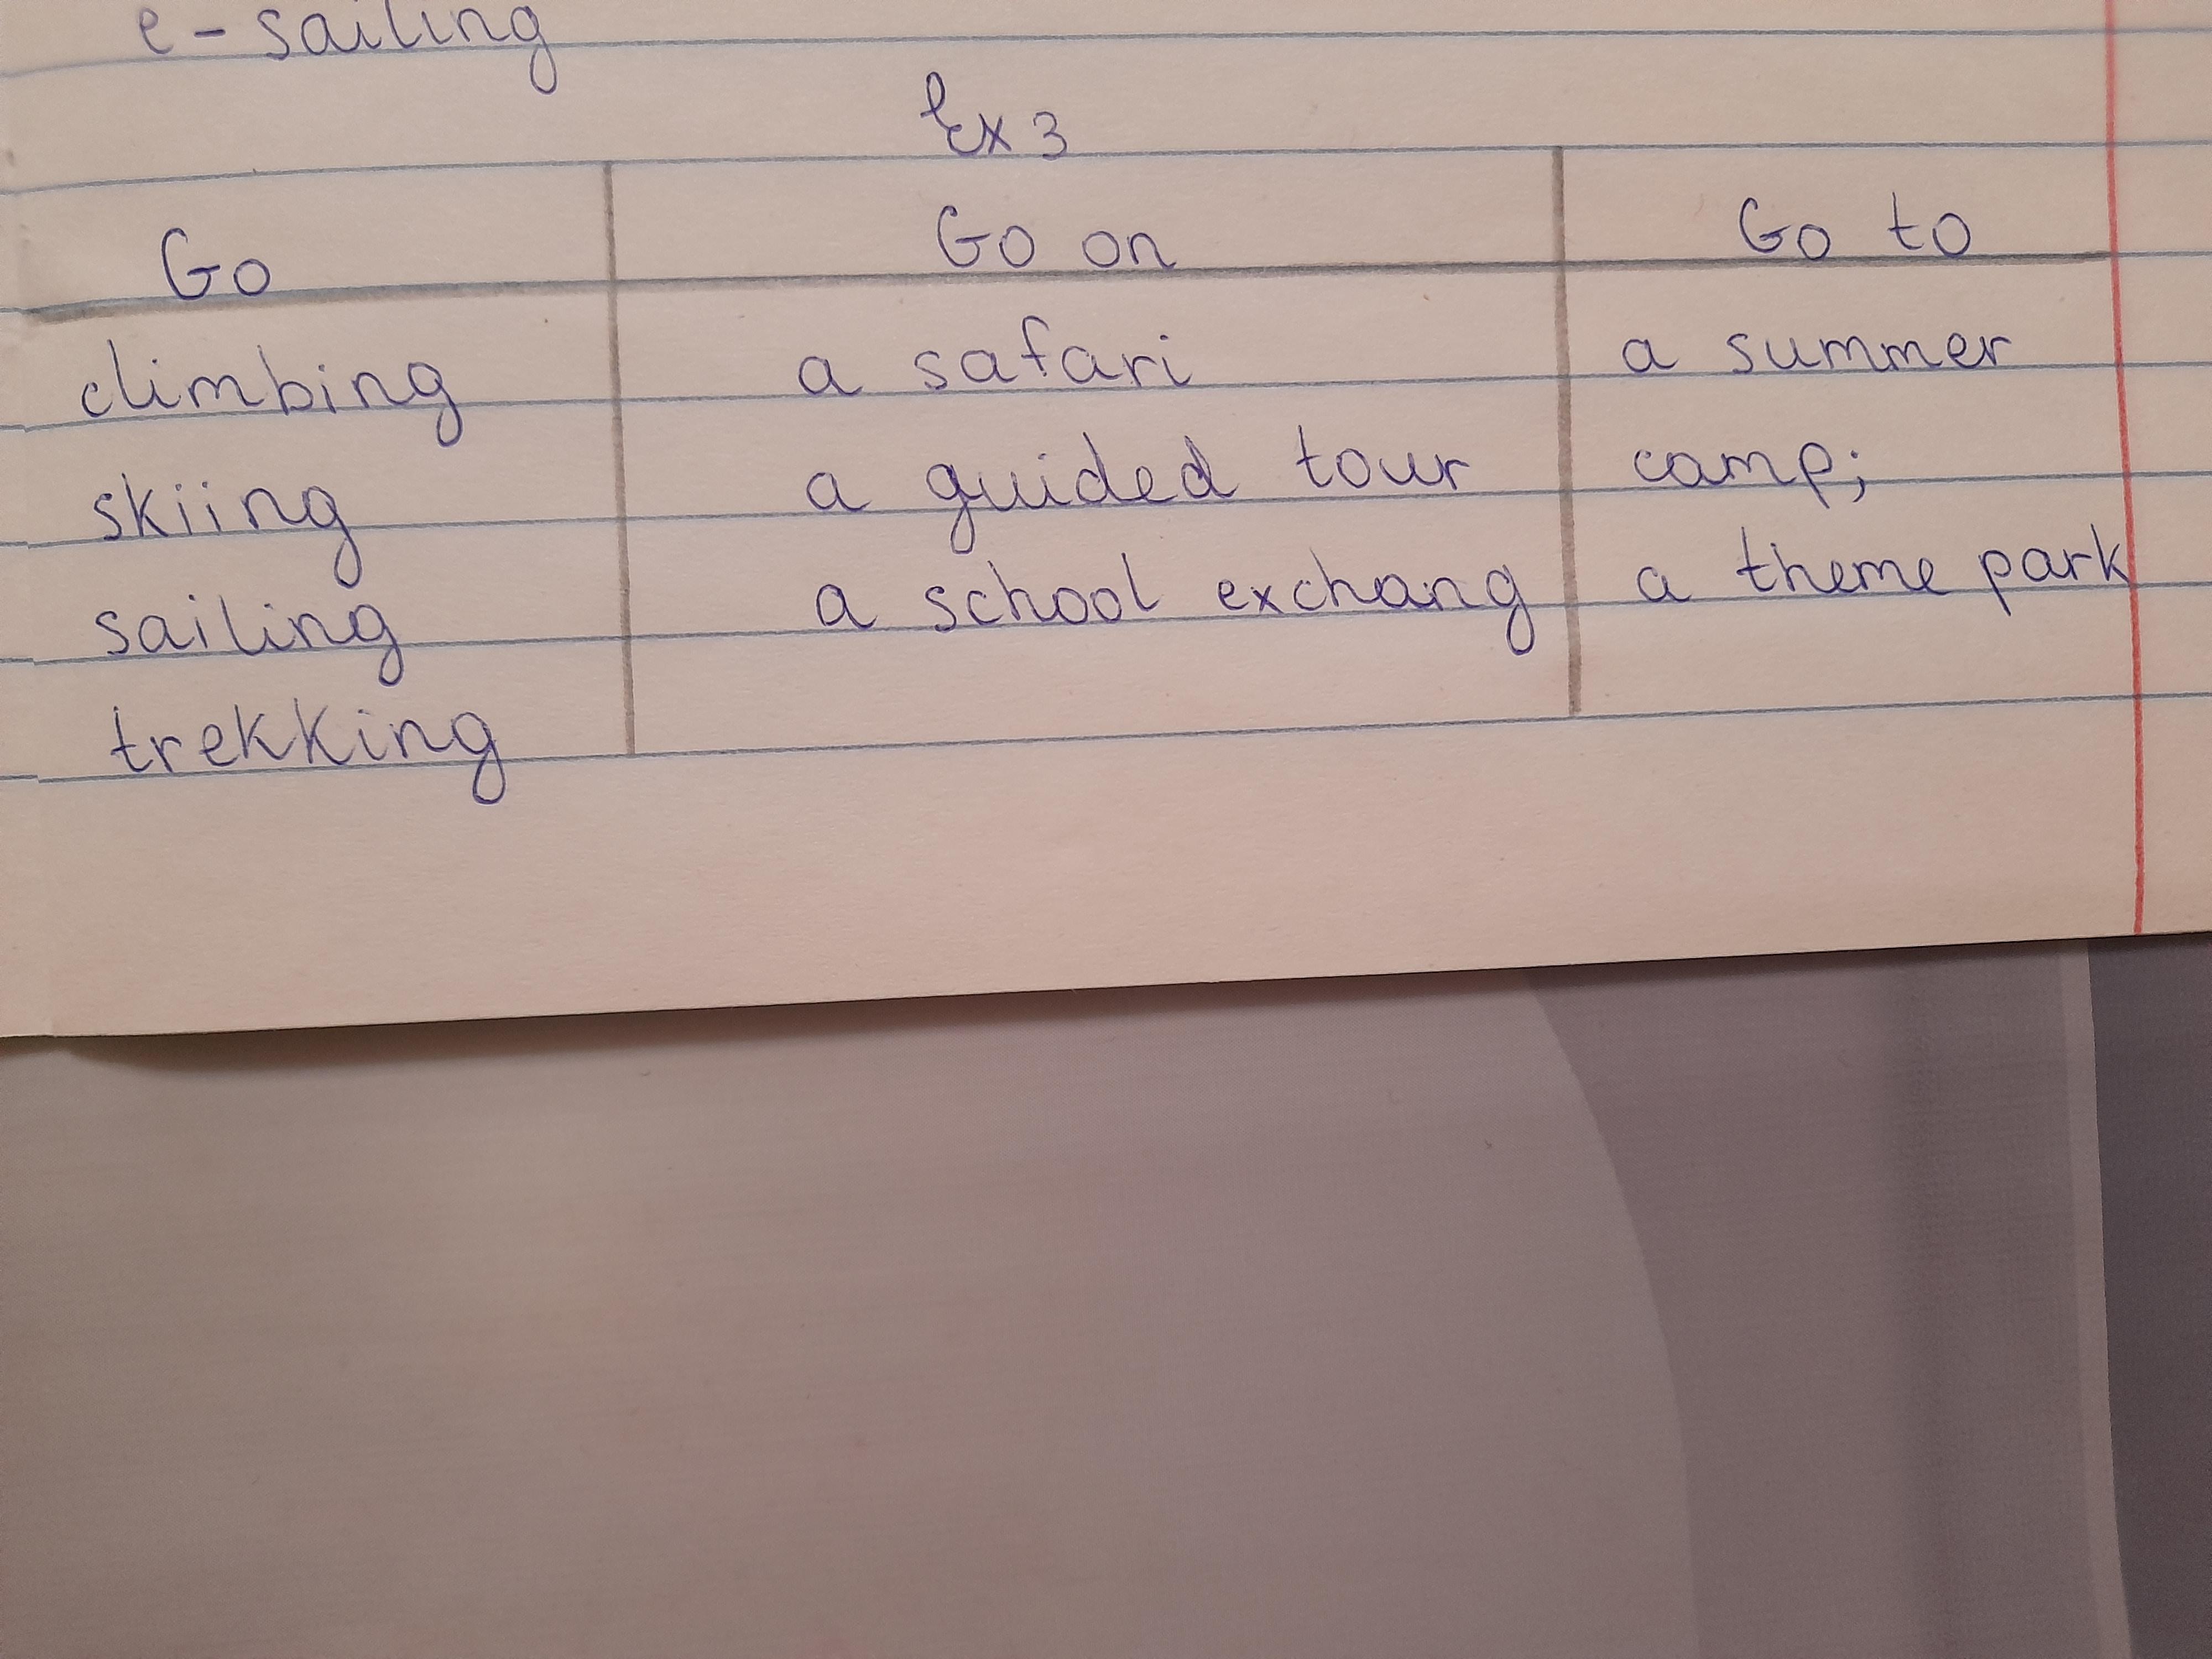 e - sailing
Ex 3
Go Go on Go to
climbing a safari a summer
skiing a guided tour camp;
sailing a school exchang a theme park
trekking